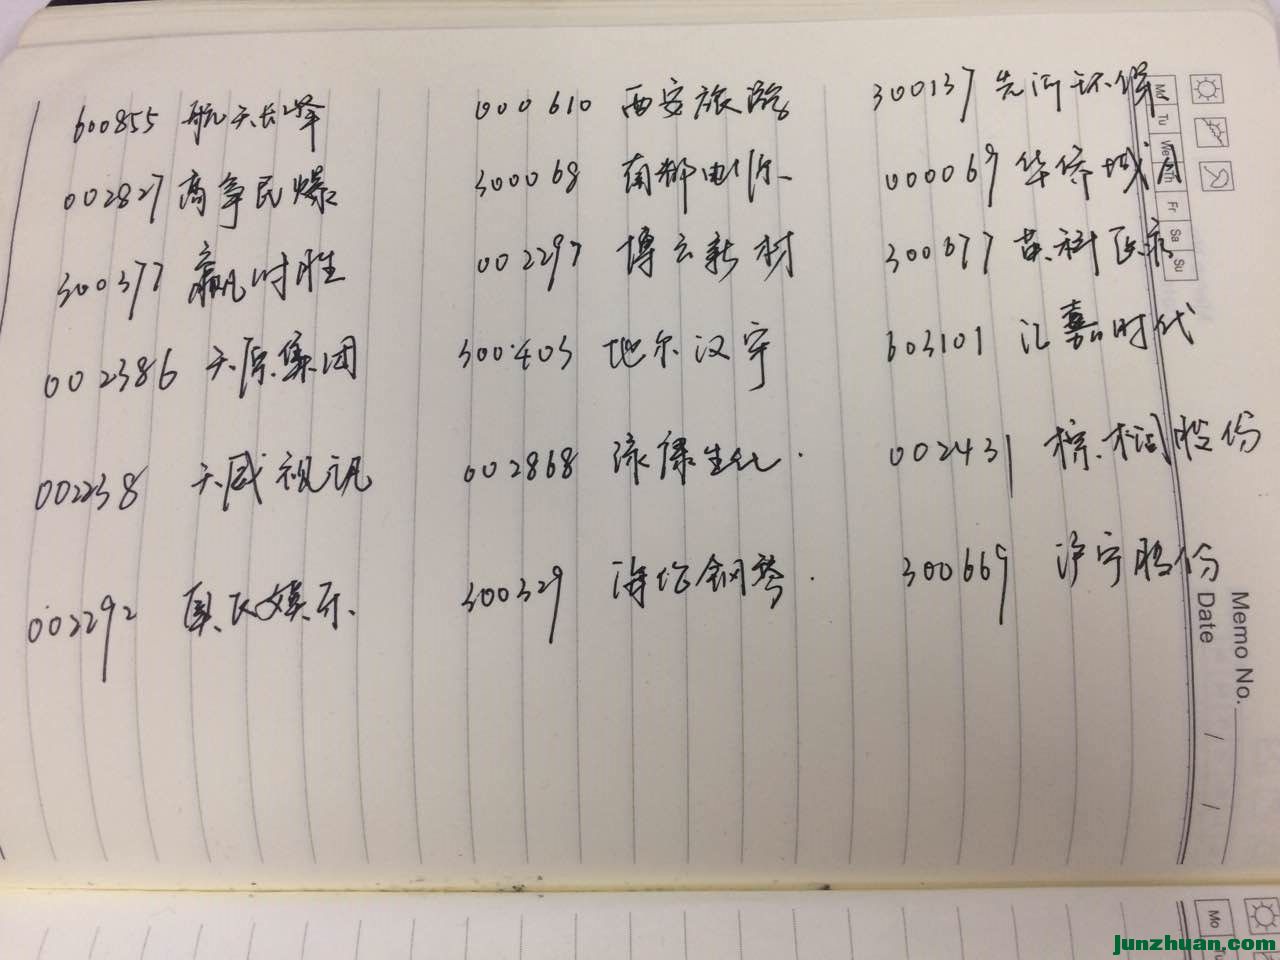 600855 航天长峰 000 610 西安旅游 300137 先河环保
002827 高争民爆 300068 南都电源 000069 华侨城A
300377 赢时胜 002297 博云新材 300677 英科医疗
002386 天原集团 300403 地尔汉宇 603101 汇嘉时代
002238 天威视讯 002868 绿康生化. 002431 棕榈股份
002292 奥飞娱乐. 300329 海伦钢琴. 300669 沪宁股份
Mo Tu We Th Fr Sa Su
Memo No.
Date / /
Mo
junzhuan.com